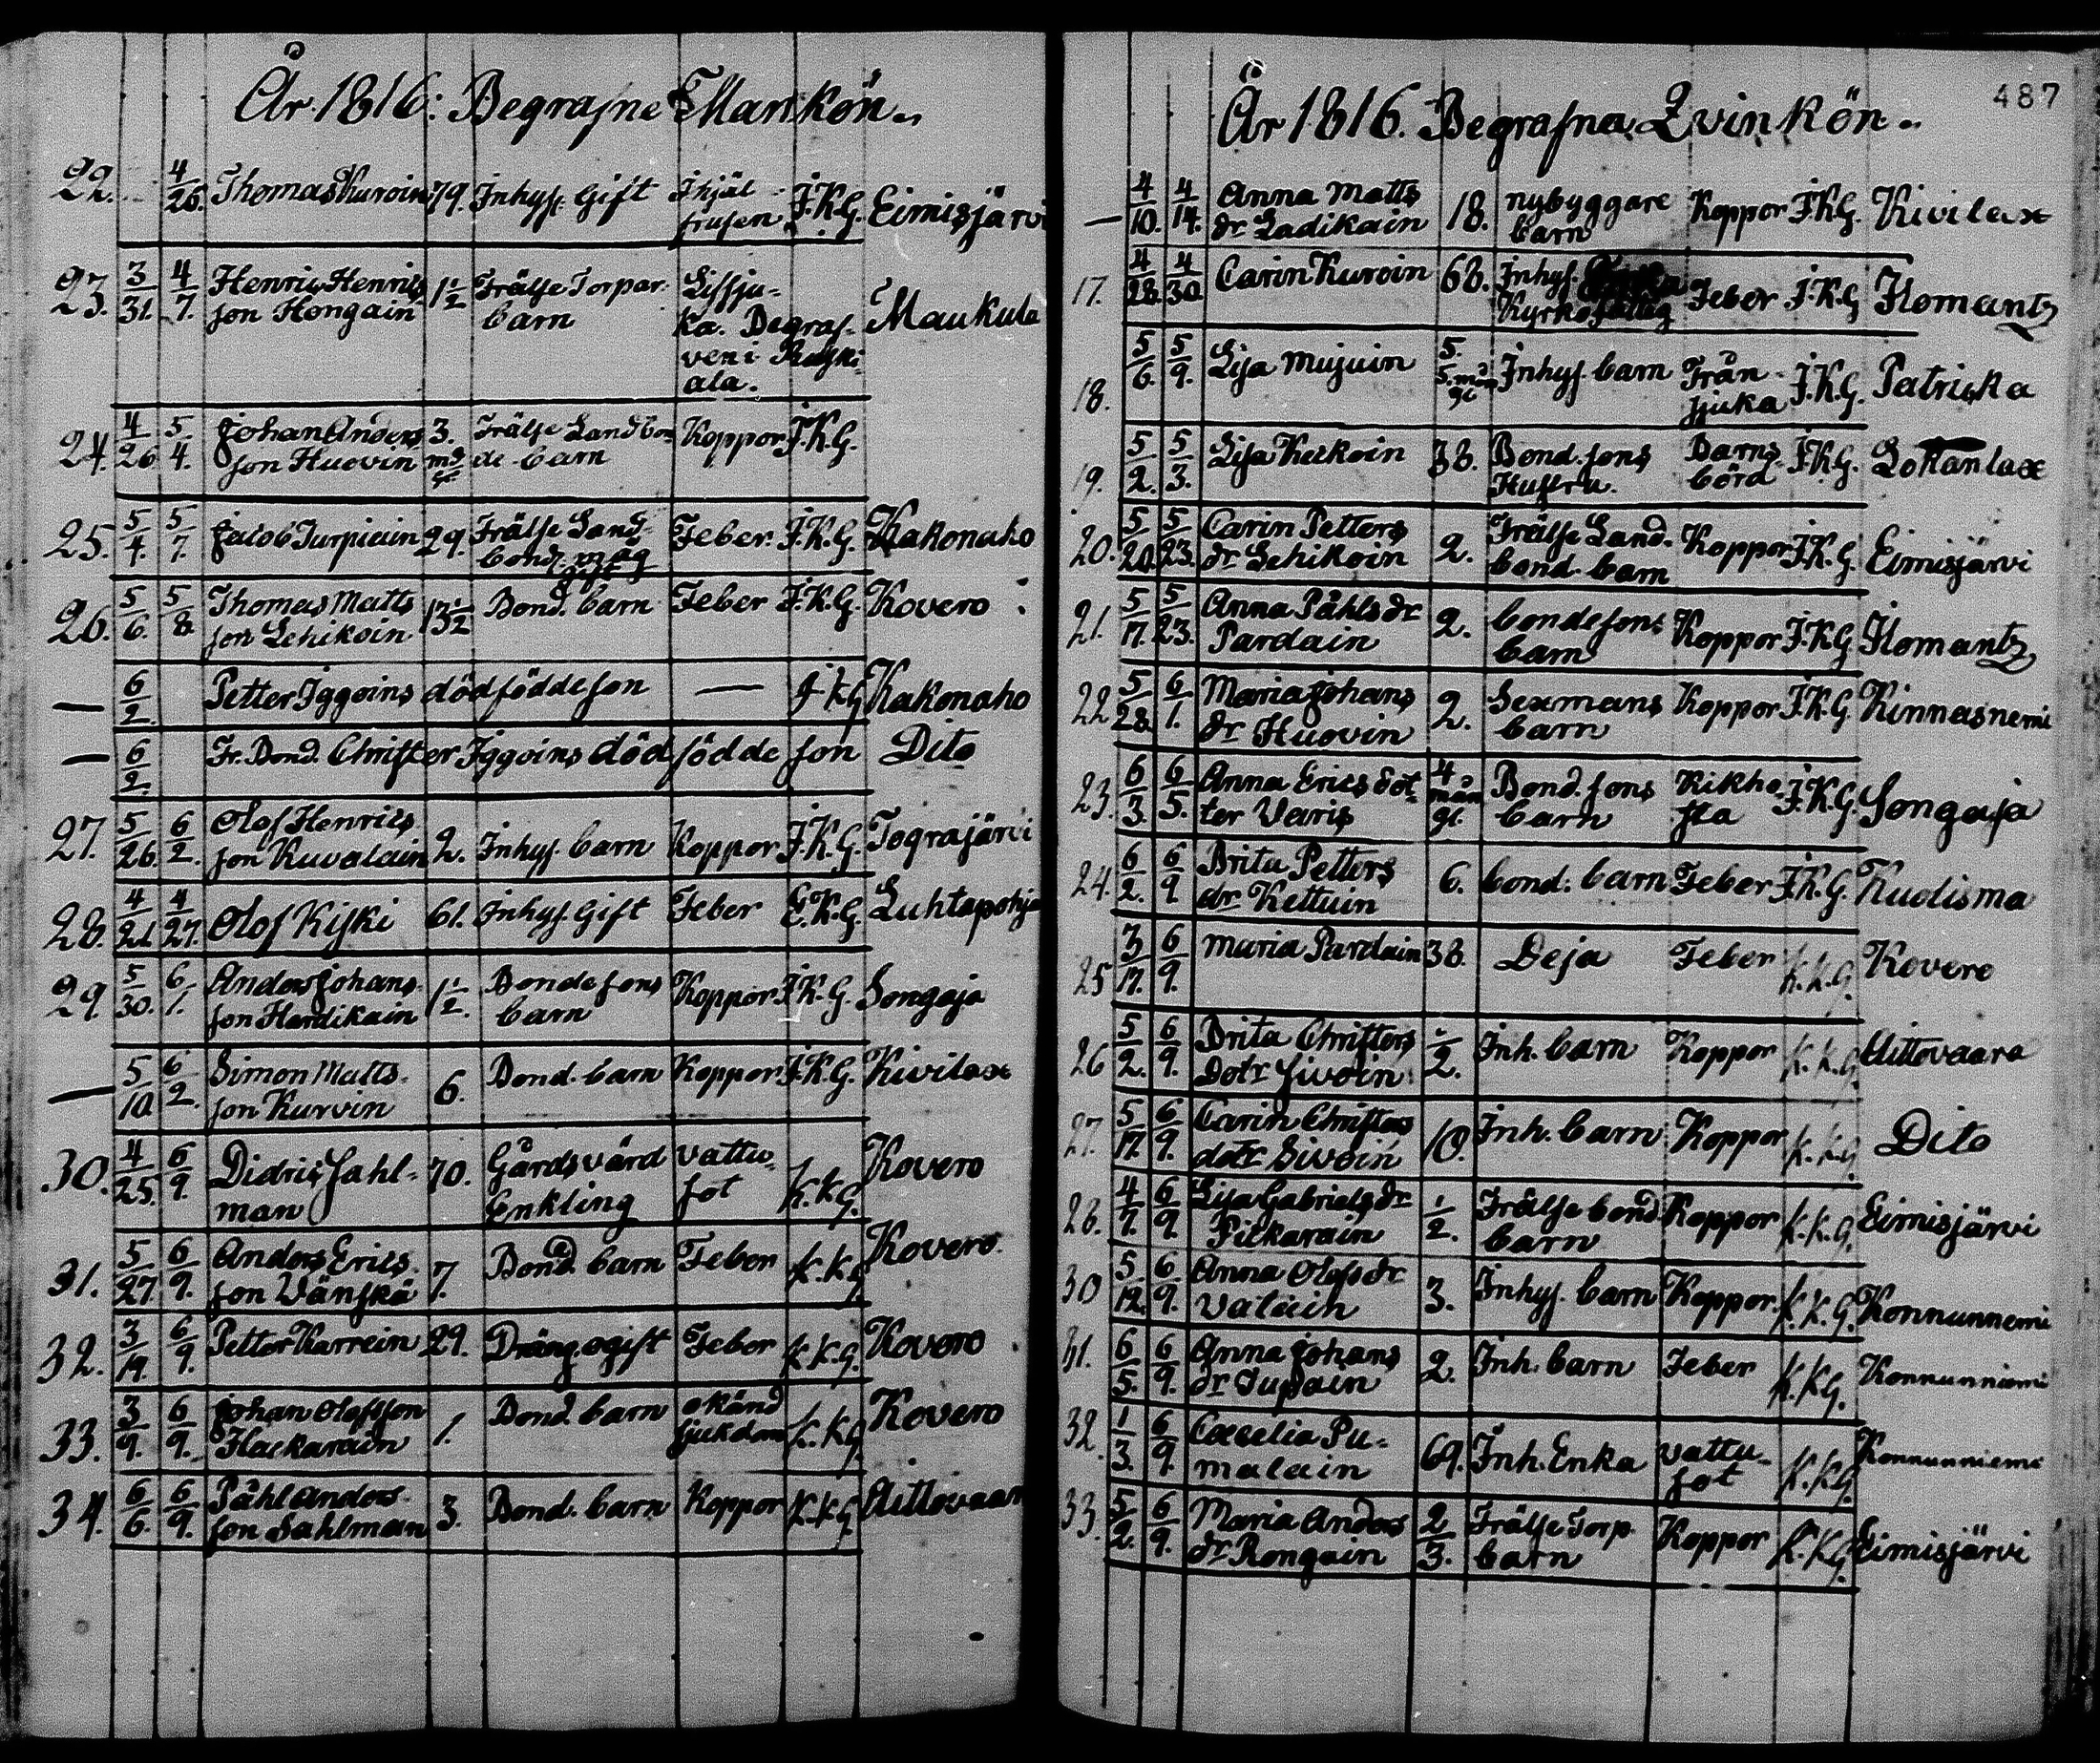 År 1816: Begrafne Mankön.
22. 4/26. Thomas Kuroin 79. Inhys. Gift Ihjäl frusen J.K.G. Eimisjärvi
23. 3/31. 4/7. Henric Henrics son Hongain 1½ Frälse Torpar barn Lissjuka. Begrafven i Pelkiala. Maukula
24. 4/26 5/4. Johan Anders son Huovin 3. mdr gl. Frälse Landbonde barn Koppor J.K.G.
25. 5/4. 5/7. Jacob Turpiain 29. Frälse Land bond. mag gift Feber. J.K.G. Kakonaho
26. 5/6. 5/8. Thomas Matts son Lehikoin 13½ Bond. barn Feber J.K.G. Kovero
— 6/2 Petter Iggoins dödfödde son — J.K.G. Kakonaho
— 6/2. Fr. Bond. Christer Iggoins död födde son Dito
27. 5/26. 6/2. Olof Henrics son Kuvalain 2. Inhys. barn Koppor J.K.G. Tograjärvi
28. 4/21 4/27. Olof Kiski 61. Inhys. Gift Feber E.K.G. Luhtapohja
29. 5/30. 6/1. Anders Johans son Hardikain 1½. Bonde sons barn Koppor. J.K.G. Songaja
— 5/10. 6/2. Simon Matts son Kurvin 6. Bond. barn Koppor J.K.G. Kivilax
30. 4/25. 6/9. Didric Sahlman 70. Gårdsvärd Enkling vattusot K.K.G. Kovero
31. 5/27 6/9. Anders Erics son Vänskä 7. Bond. barn Feber K.K.G. Kovero.
32. 3/19. 6/9. Petter Karrein 29. Dräng ogift Feber K.K.G. Kovero
33. 3/9. 6/9. Johan Olofsson Hackarain 1. Bond. barn okänd sjukdom K.K.G. Kovero
34. 6/6. 6/9. Påhl Anders son Sahlman 3. Bond. barn Koppor K.K.G. Aittovaar
487
År 1816. Begrafna Qvinkön.
— 4/10. 4/14. Anna Matts dr Ladikain 18. nybyggare barn Koppor J.K.G. Kivilax
17. 4/28. 4/30. Carin Kuroin 68. Inhys. Kyrkofattig Feber J.K.G Ilomantz
18. 5/6. 5/9. Lisa Mujuin 5. 5. mån gl Inhys. barn Trånsjuka J.K.G. Patriska
19. 5/2. 5/3. Lisa Keckoin 38. Bond. sons Hustru. Barnsbörd J.K.G. Lokanlax
20. 5/20. 5/23. Carin Petters dr Lehikoin 2. Frälse Land. bond. barn Koppor J.K.G. Eimisjärvi
21. 5/17. 5/23. Anna Påhls dr Pardain 2. bondesons barn Koppor J.K.G Ilomantz
22 5/28. 6/1. Maria Johans dr Huovin 2. Sexmans barn Koppor J.K.G. Kinnasnemi
23. 6/3. 6/5. Anna Erics dotter Varis 4 mån gl. Bond. sons barn Kikhosta J.K.G. Songaja
24. 6/2. 6/9 Brita Petters dr Kettuin 6. bond. barn Feber J.K.G. Kuolisma
25 3/17. 6/9. Maria Pardain 38. Deja Feber K.K.G. Kovero
26 5/2. 6/9. Brita Christers Dotr Sivoin ½. Inh. barn Koppor K.K.G. Aittovaara
27. 5/17. 6/9. Carin Christers dotr Sivoin 10. Inh. barn Koppor K.K.G. Dito
28. 4/7. 6/9. Lisa Gabriels dr Pickarain ½. Frälse bond barn Koppor K.K.G. Eimisjärvi
30 5/12. 6/9. Anna Olofs dr Valain 3. Inhys. barn Koppor. K.K.G. Konnunnemi
31. 6/5. 6/9. Anna Johans dr Supain 2. Inh. barn Feber K.K.G. Konnunniemi
32. 1/3. 6/9. Cæcelia Pumalain 69. Inh. Enka vattusot K.K.G. Konnunniemi
33. 5/2. 6/9. Maria Anders dr Rongain 2/3. Frälse Torp. barn Koppor K.K.G. Eimisjärvi